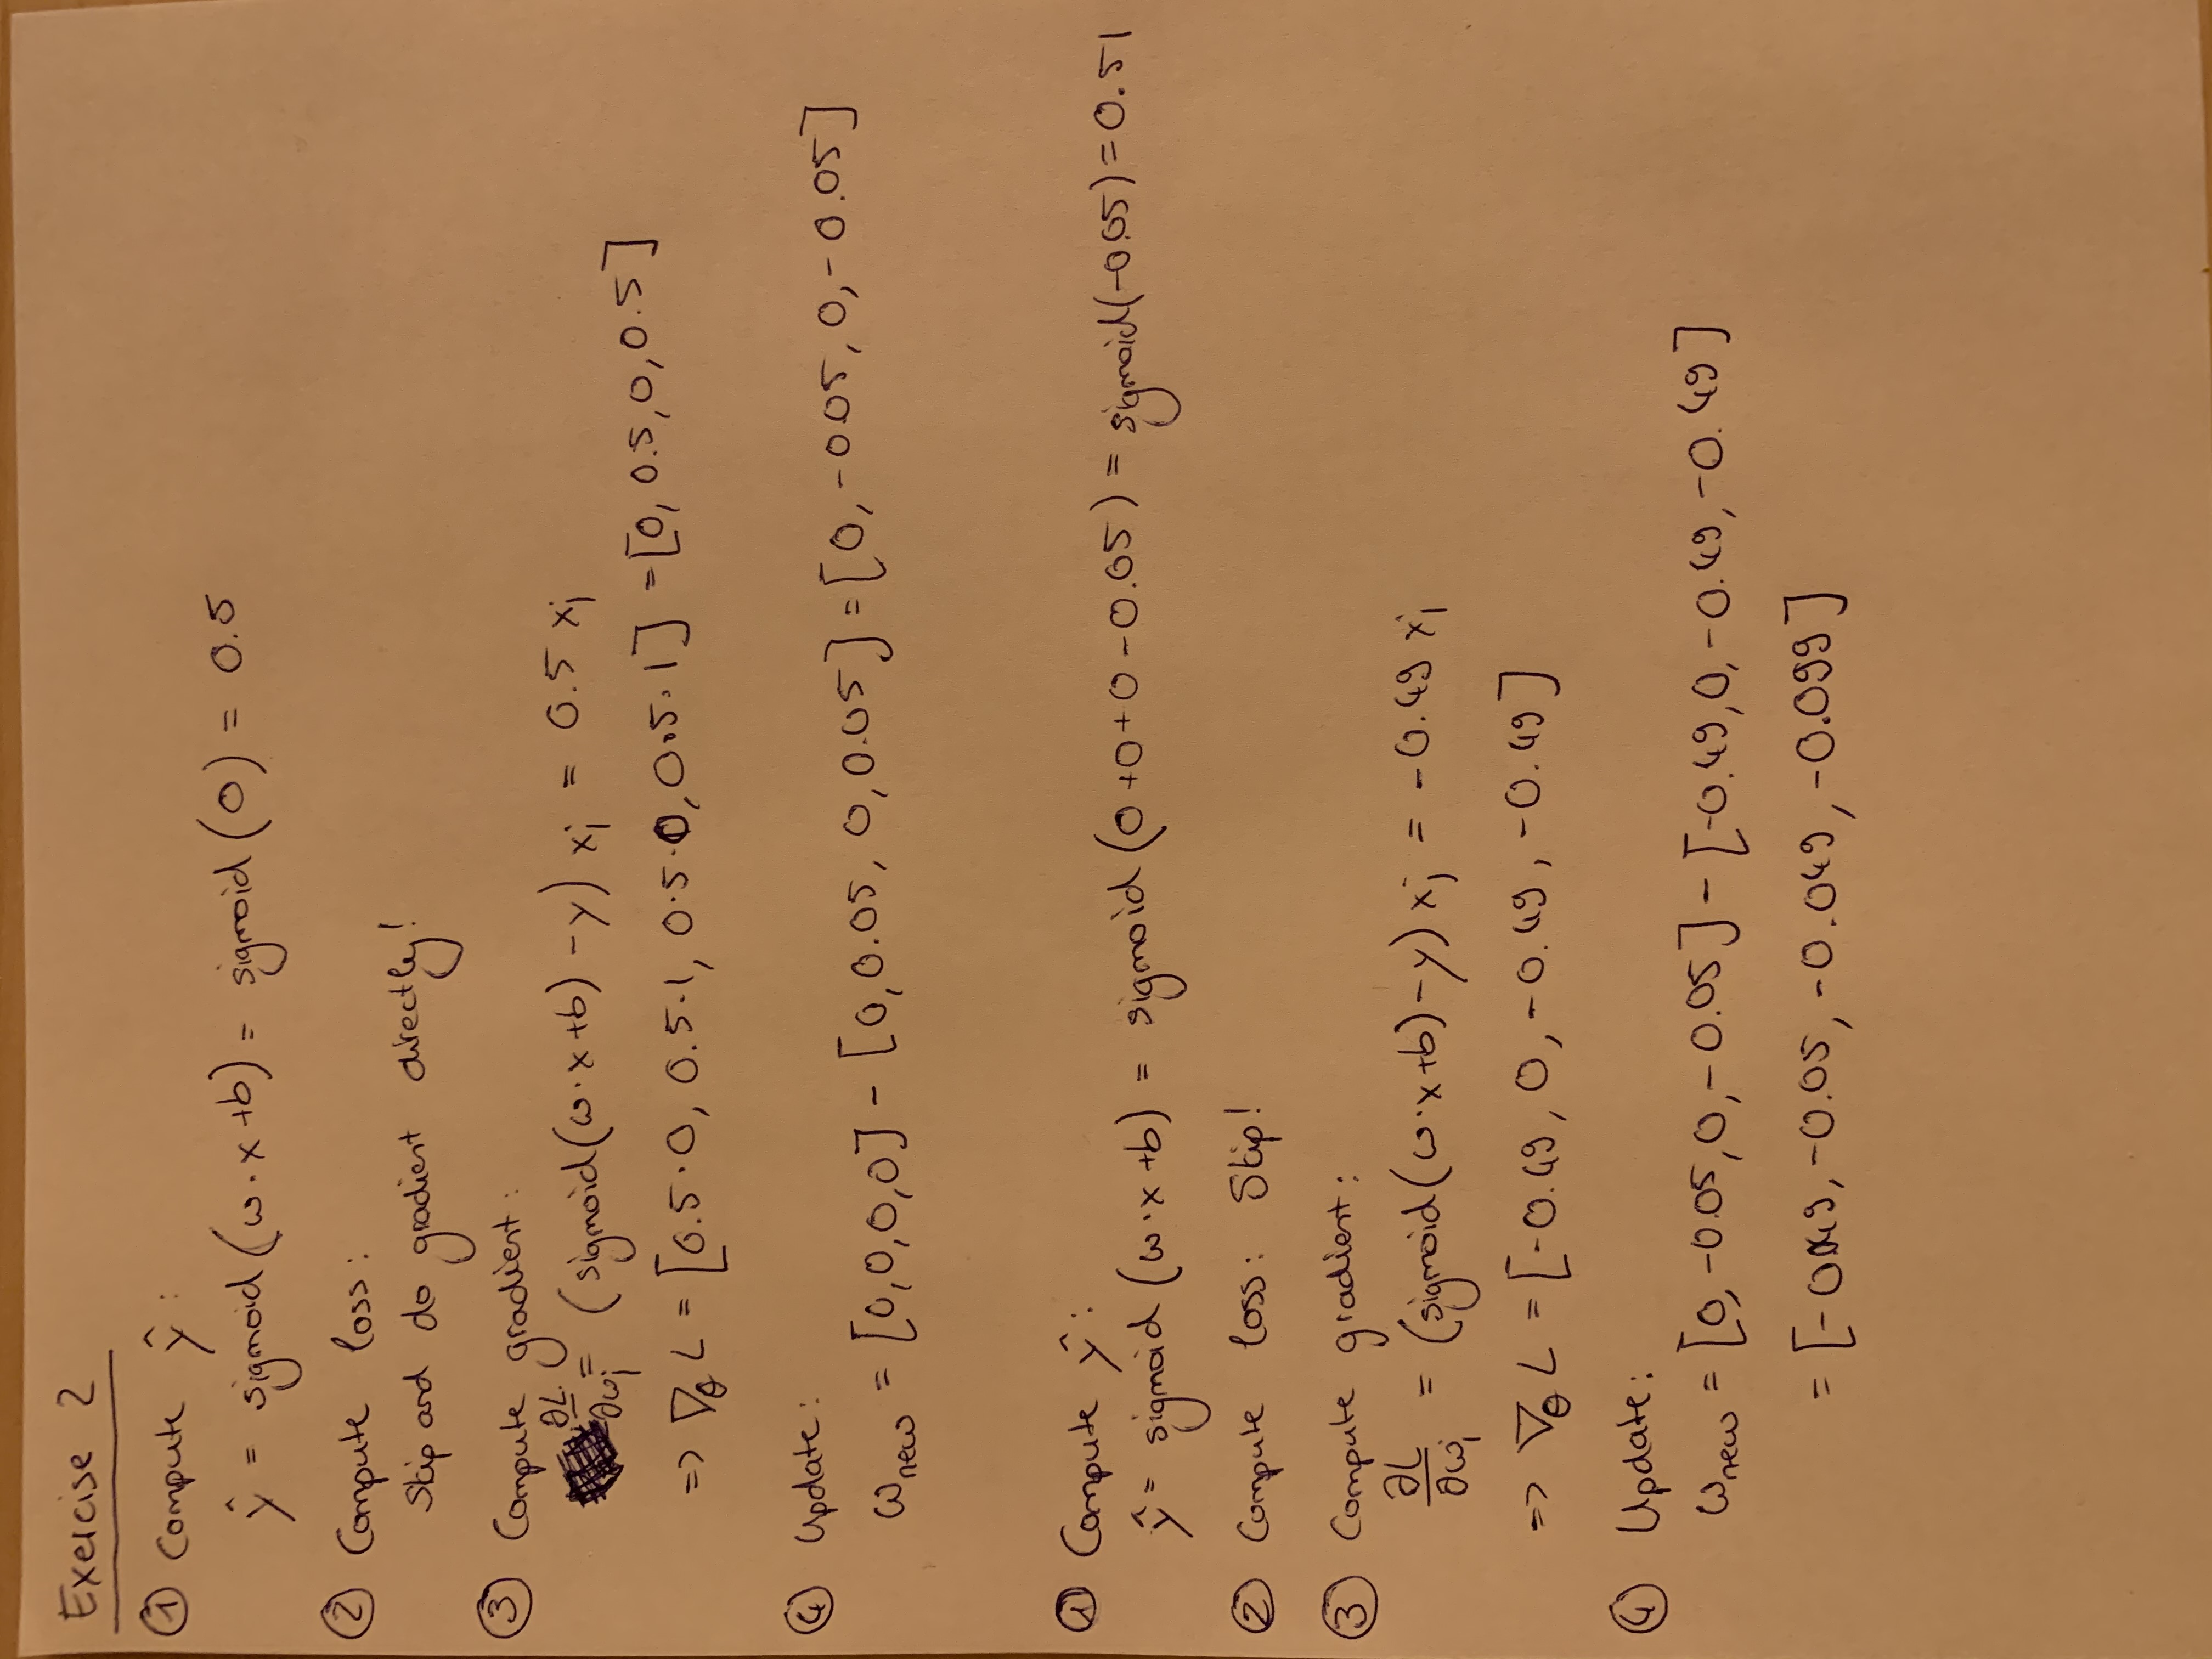 Exercise 2
① Compute ŷ:
ŷ = sigmoid(ω·x+b) = sigmoid(0) = 0.5
② Compute loss:
Skip and do gradient directly!
③ Compute gradient:
∂L/∂ωⱼ = (sigmoid(ω·x+b) - y) xⱼ = 0.5 xⱼ
=> ∇θ L = [0.5·0, 0.5·1, 0.5·0, 0.5·1] = [0, 0.5, 0, 0.5]
④ Update:
ωnew = [0,0,0,0] - [0, 0.05, 0, 0.05] = [0, -0.05, 0, -0.05]
① Compute ŷ:
ŷ = sigmoid(ω·x+b) = sigmoid(0+0+0-0.05) = sigmoid(-0.05) = 0.51
② Compute loss: Skip!
③ Compute gradient:
∂L/∂ωⱼ = (sigmoid(ω·x+b) - y) xⱼ = -0.49 xⱼ
=> ∇θ L = [-0.49, 0, -0.49, -0.49]
④ Update:
ωnew = [0, -0.05, 0, -0.05] - [-0.49, 0, -0.49, -0.49]
= [-0.049, -0.05, -0.049, -0.099]